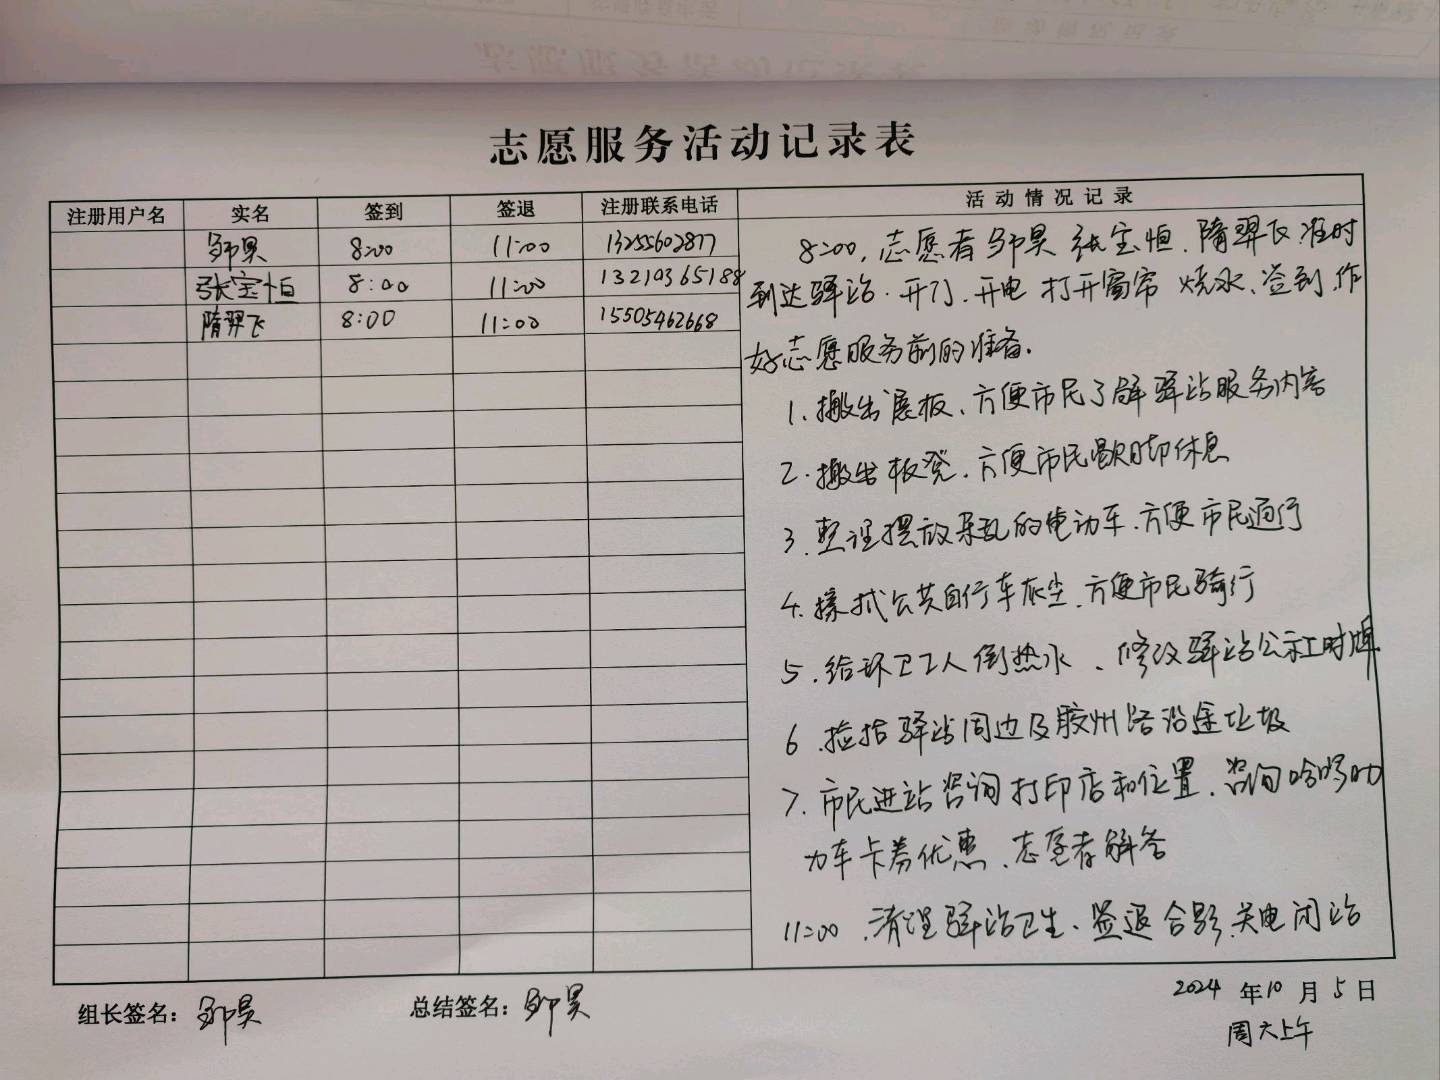 志愿服务活动记录表
注册用户名 实名 签到 签退 注册联系电话 活动情况记录
邹昊 8:00 11:00 13255602877
张宝恒 8:00 11:00 13210365188
隋羿飞 8:00 11:00 15505462668
8:00,志愿者邹昊 张宝恒、隋羿飞准时
到达驿站.开门、开电 打开窗帘 烧水、签到、作
好志愿服务前的准备.
1.搬出展板、方便市民了解驿站服务内容
2.搬出板凳、方便市民歇脚休息
3.整理摆放杂乱的电动车、方便市民通行
4.擦拭公共自行车灰尘、方便市民骑行
5.给环卫工人倒热水、修改驿站公示时牌
6.捡拾驿站周边及胶州路沿途垃圾
7.市民进站咨询打印店和位置、咨询哈啰助
力车卡券优惠、志愿者解答
11:00、清理驿站卫生、签退 合影、关电闭站
组长签名:邹昊 总结签名:邹昊
2024年10月5日
周六上午